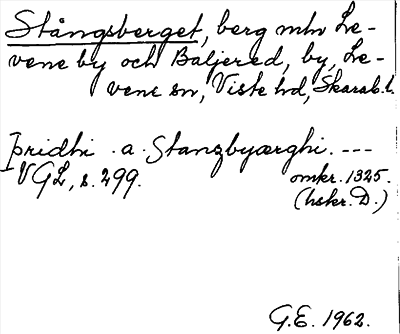 Stångsberget, berg mln Le-
vene by och Baljered, by, Le-
vene sn, Viste hd, Skarab. l.
Þridhi . a . Stanzbyærghi. ---
VGL, s. 299. omkr. 1325.
(hskr. D.)
G.E. 1962.